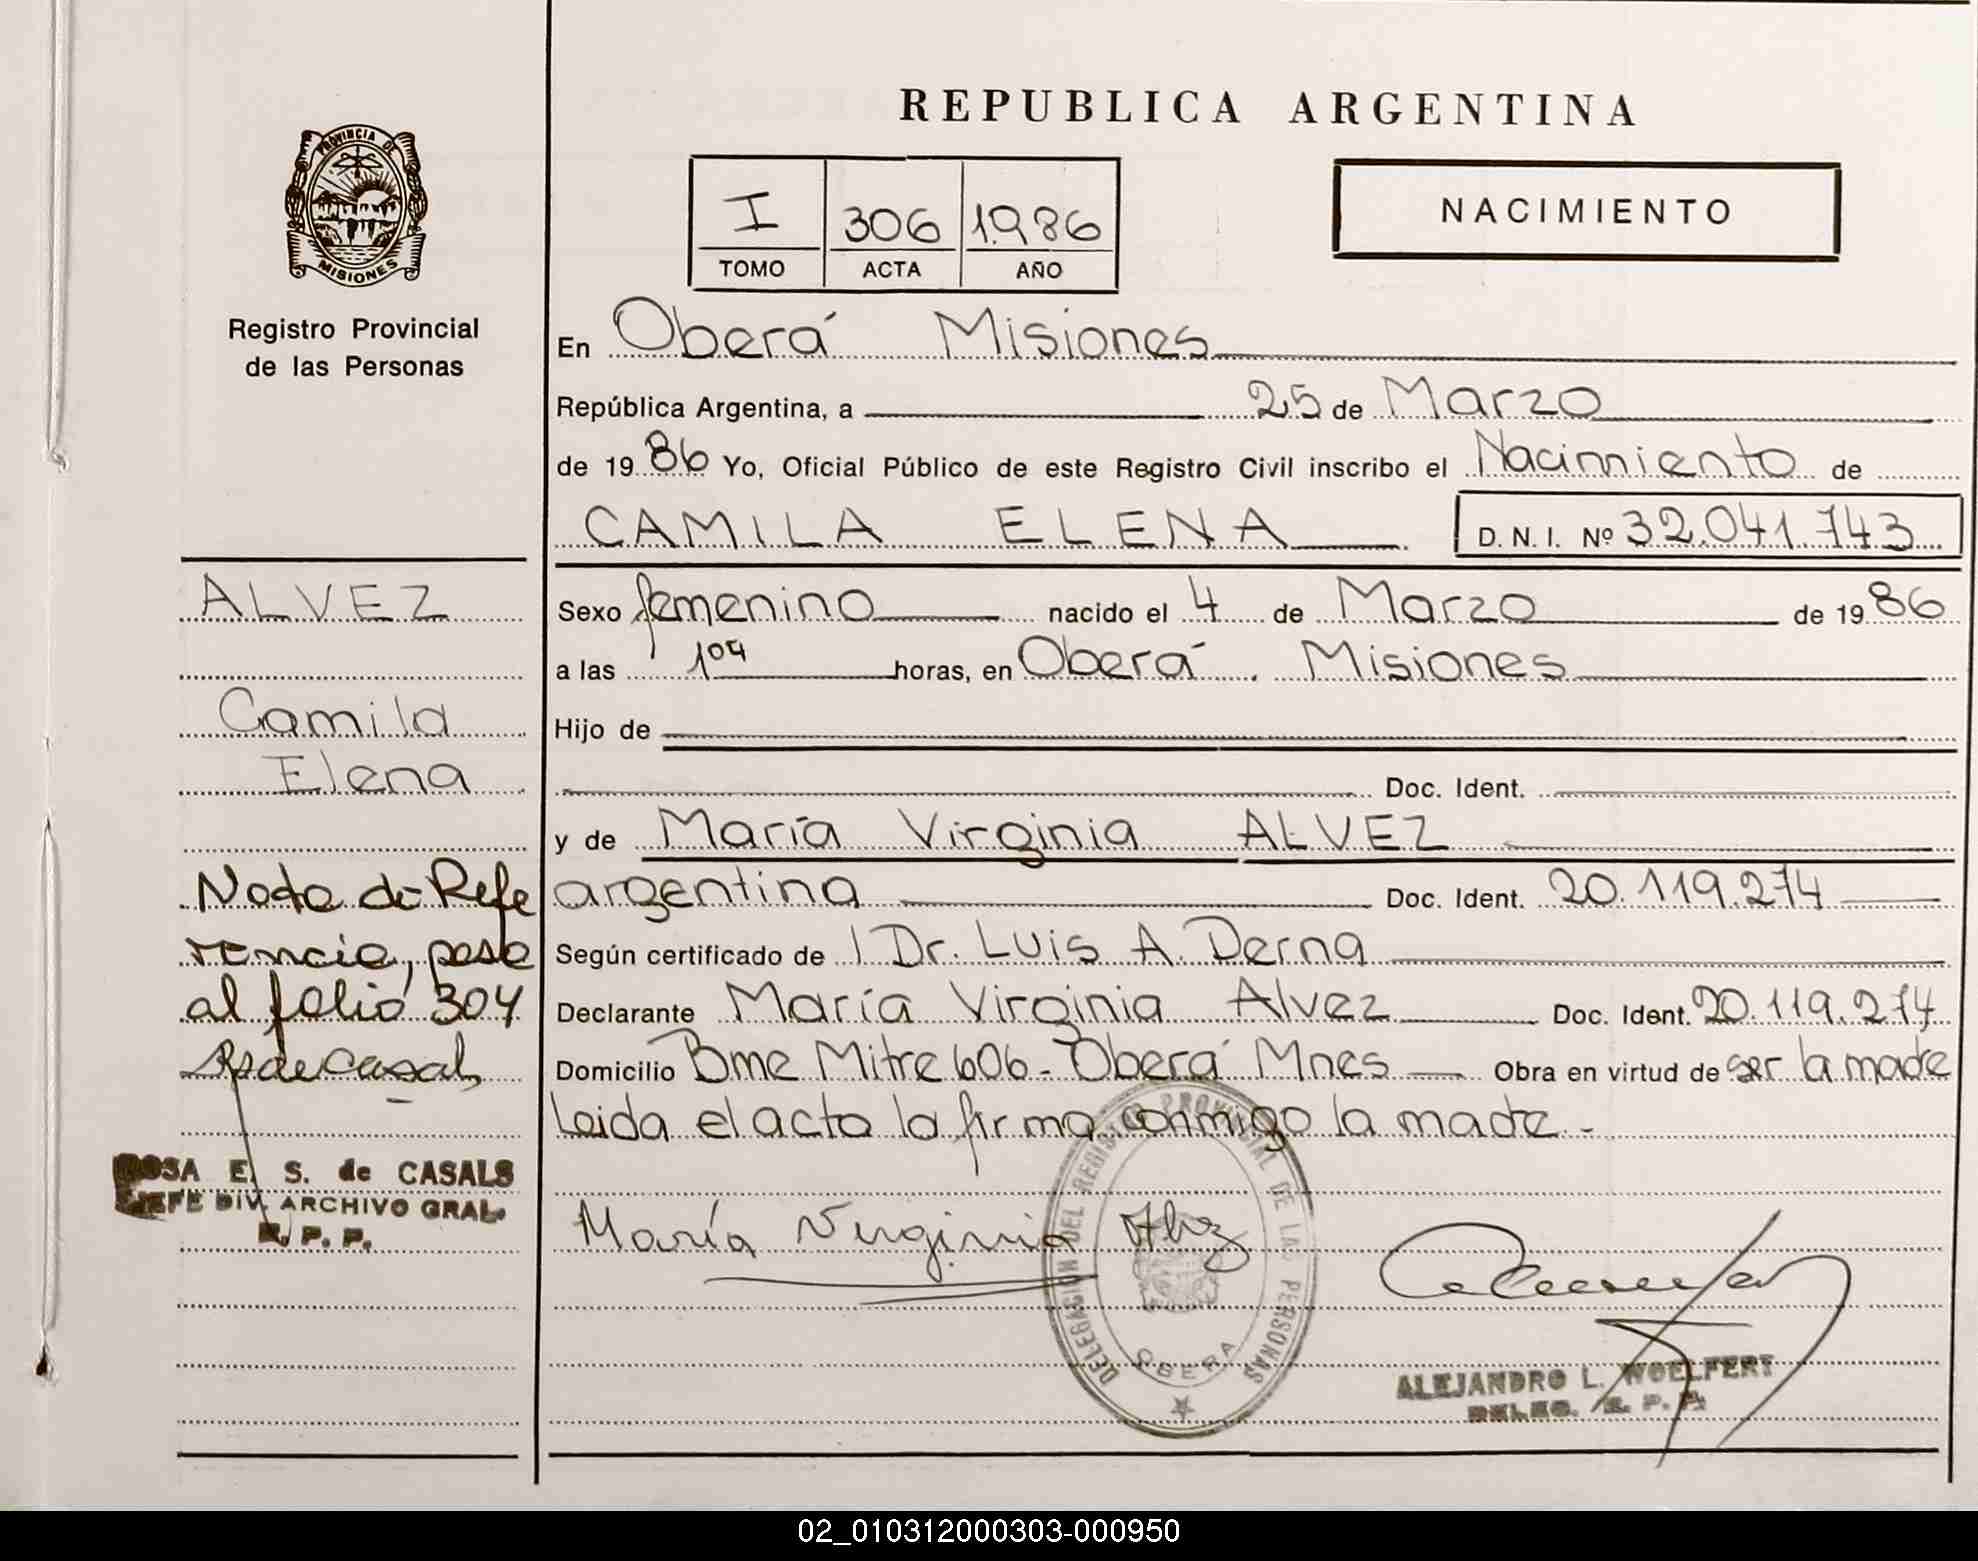 REPUBLICA ARGENTINA
PROVINCIA DE
MISIONES
Registro Provincial
de las Personas
I 306 1986
TOMO ACTA AÑO
NACIMIENTO
En Oberá Misiones
República Argentina, a 25 de Marzo
de 1986 Yo, Oficial Público de este Registro Civil inscribo el Nacimiento de
CAMILA ELENA D. N. I. Nº 32.041.743
Sexo femenino nacido el 4 de Marzo de 1986
a las horas, en Oberá. Misiones
Hijo de
Doc. Ident.
y de María Virginia ALVEZ
argentina Doc. Ident. 20.119.274
Según certificado de l Dr. Luis A. Derna
Declarante María Virginia Alvez Doc. Ident. 20.119.274
Domicilio Bme Mitre 606 - Oberá Mnes Obra en virtud de ser la madre
Leida el acta la firma conmigo la madre.-
María Virginia Alvez
DELEGACION DEL REGISTRO PROVINCIAL DE LAS PERSONAS
OBERA
ALEJANDRO L. WOELFERT
DELEG. R. P. P.
ALVEZ
Camila
Elena
Nota de Refe
rencia, pasa
al folio 304
ROSA E. S. de CASALS
JEFE DIV. ARCHIVO GRAL.
R. P. P.
02_010312000303-000950